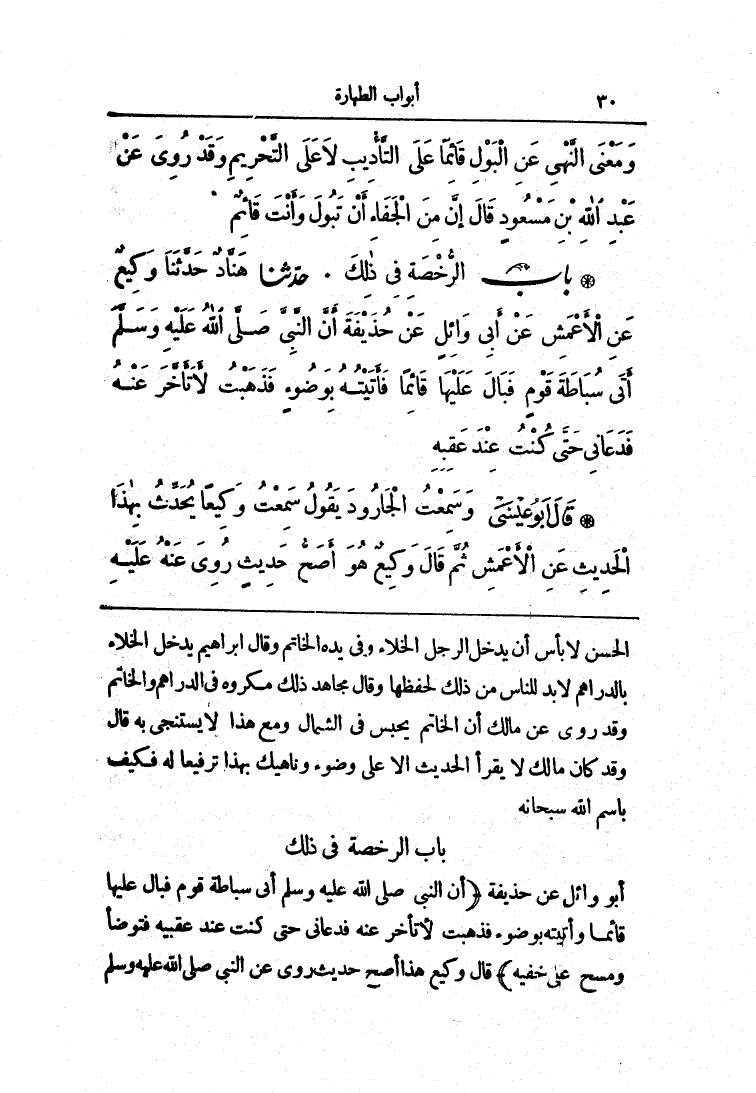 ٣٠ أبواب الطهارة
وَمَعْنَى النَّهْىِ عَنِ الْبَوْلِ قَائِمًا عَلَى التَّأْدِيبِ لَا عَلَى التَّحْرِيمِ وَقَدْ رُوِىَ عَنْ
عَبْدِ اللهِ بْنِ مَسْعُودٍ قَالَ إِنَّ مِنَ الْجَفَاءِ أَنْ تَبُولَ وَأَنْتَ قَائِمٌ
❊ بَابُ الرُّخْصَةِ فِى ذٰلِكَ . حَدَّثَنَا هَنَّادٌ حَدَّثَنَا وَكِيعٌ
عَنِ الْأَعْمَشِ عَنْ أَبِى وَائِلٍ عَنْ حُذَيْفَةَ أَنَّ النَّبِىَّ صَلَّى اللهُ عَلَيْهِ وَسَلَّمَ
أَتَى سُبَاطَةَ قَوْمٍ فَبَالَ عَلَيْهَا قَائِمًا فَأَتَيْتُهُ بِوَضُوءٍ فَذَهَبْتُ لِأَتَأَخَّرَ عَنْهُ
فَدَعَانِى حَتَّى كُنْتُ عِنْدَ عَقِبِهِ
❊ قَالَ أَبُو عِيسَى وَسَمِعْتُ الْجَارُودَ يَقُولُ سَمِعْتُ وَكِيعًا يُحَدِّثُ بِهٰذَا
الْحَدِيثِ عَنِ الْأَعْمَشِ ثُمَّ قَالَ وَكِيعٌ هُوَ أَصَحُّ حَدِيثٍ رُوِىَ عَنْهُ عَلَيْهِ
الحسن لا بأس أن يدخل الرجل الخلاء وفى يده الخاتم وقال ابراهيم يدخل الخلاء
بالدراهم لابد للناس من ذلك لحفظها وقال مجاهد ذلك مكروه فى الدراهم والخاتم
وقد روى عن مالك أن الخاتم يحبس فى الشمال ومع هذا لا يستنجى به قال
وقد كان مالك لا يقرأ الحديث الا على وضوء وناهيك بهذا ترفيعا له فكيف
باسم الله سبحانه
باب الرخصة فى ذلك
أبو وائل عن حذيفة (أن النبى صلى الله عليه وسلم أتى سباطة قوم فبال عليها
قائما وأتيته بوضوء فذهبت لأتأخر عنه فدعانى حتى كنت عند عقبيه فتوضأ
ومسح على خفيه) قال وكيع هذا أصح حديث روى عن النبى صلى الله عليه وسلم